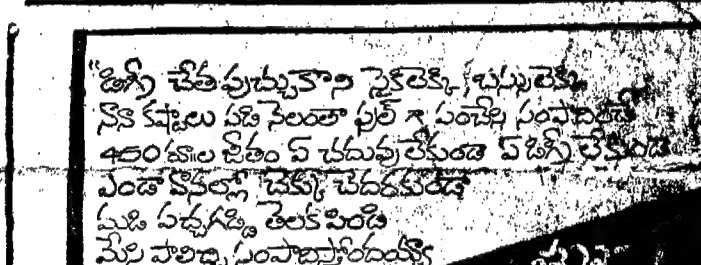 "డిగ్రీ చేత పుచ్చుకొని సైకిలెక్కి, బస్సులెక్కి
నానా కష్టాలు పడి నెలంతా ఫుల్ గా పంచేసి సంపాదించే
450 రూ॥ల జీతం ఏ చదువు లేకుండా ఏ డిగ్రీ లేకుండా
ఎండా వానల్లో చెక్కు చెదరకుండా
ముడి పచ్చగడ్డి తెలక పిండి
మేసి పాలిచ్చి సంపాదిస్తోందయ్యా